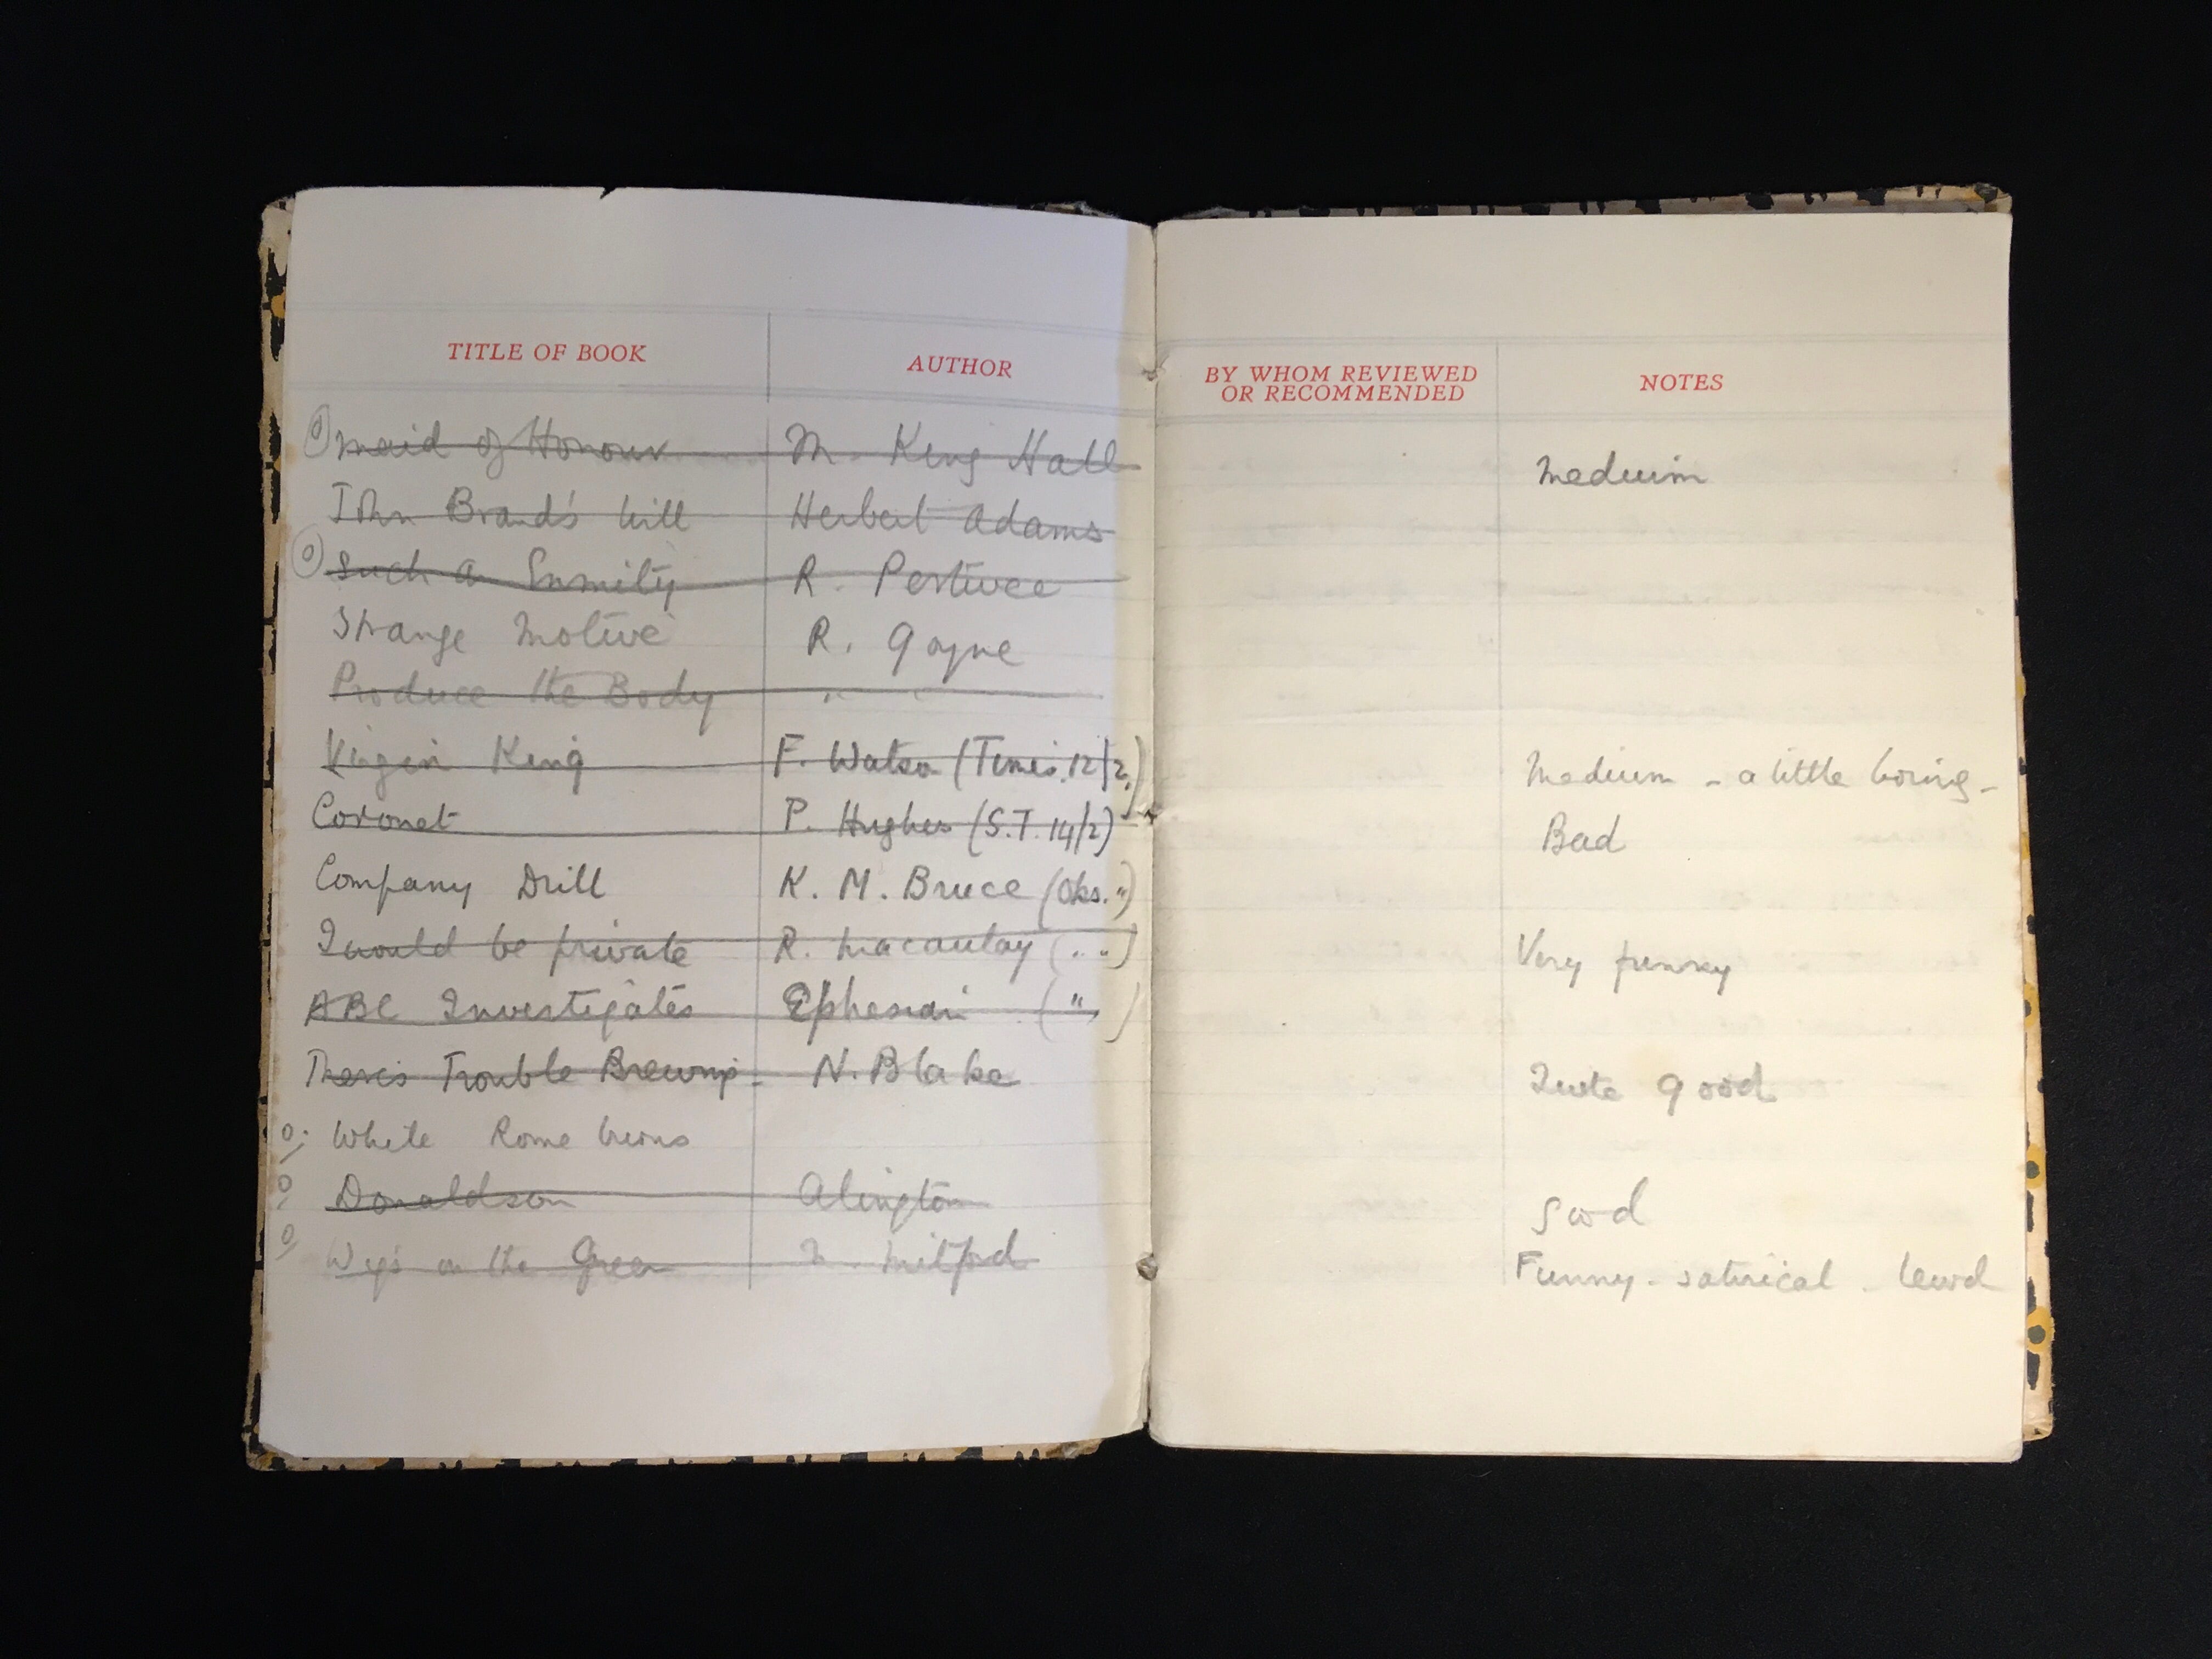 TITLE OF BOOK AUTHOR BY WHOM REVIEWED OR RECOMMENDED NOTES
Maid of Honour M. King Hall Medium
John Brand's Will Herbert Adams
Such a Enmity R. Pertwee
Strange Motive R. Gayne
Produce the Body " "
Virgin King F. Watson (Times. 12/2.) Medium - a little boring -
Coronet P. Hughes (S.T. 14/2) Bad
Company Drill K. M. Bruce (Obs. ")
I would be private R. Macaulay (" ") Very funny
ABC Investigates Ephesian ( " )
There's Trouble Brewing - N. Blake Quite good
White Rome burns
Donaldson Alington Good
Wigs on the Green N. Mitford Funny - satirical - lewd